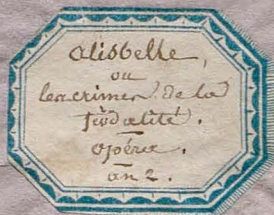 alisbelle,
ou
les crimes de la
féodalité.
opéra.
an 2.